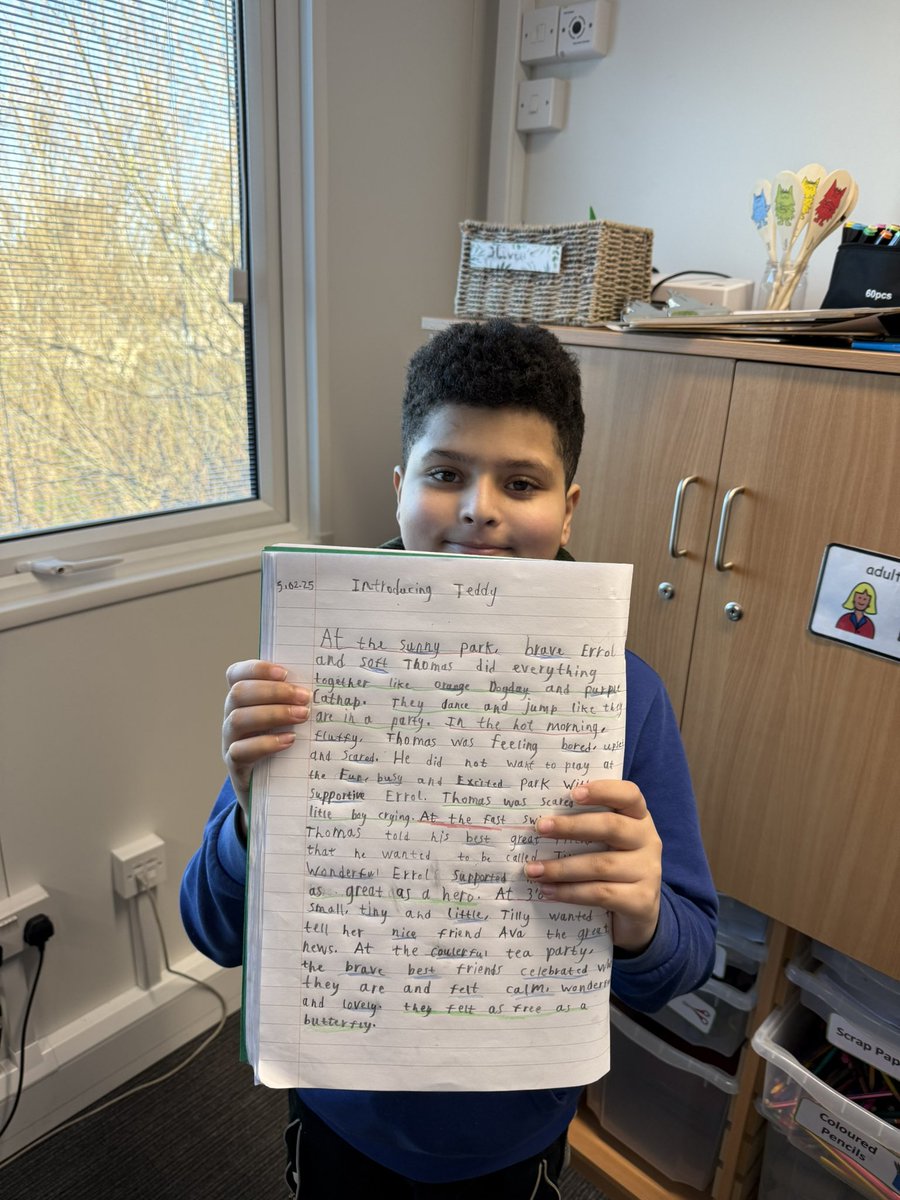 60pcs
adult
5.02.25 Introducing Teddy
At the sunny park, brave Errol
and soft Thomas did everything
together like orange Dogday and purple
Catnap. They dance and jump like they
are in a party. In the hot morning,
fluffy, Thomas was feeling bored,
and scared. He did not want to peay at
the Fun, busy and Excited park
supportive Errol. Thomas was scared
little boy crying. At the fast
Thomas told his best great
that he wanted to be called
Wonderful Errol supported
as great as a hero. At 3'o
small, tiny and little, Tilly wanted
tell her nice friend Ava the great
news. At the coulerful tea party,
the brave best friends celebrated
they are and felt calm,
and lovely. they felt as free as a
butterfly.
Scrap Pap
Coloured
Pencils